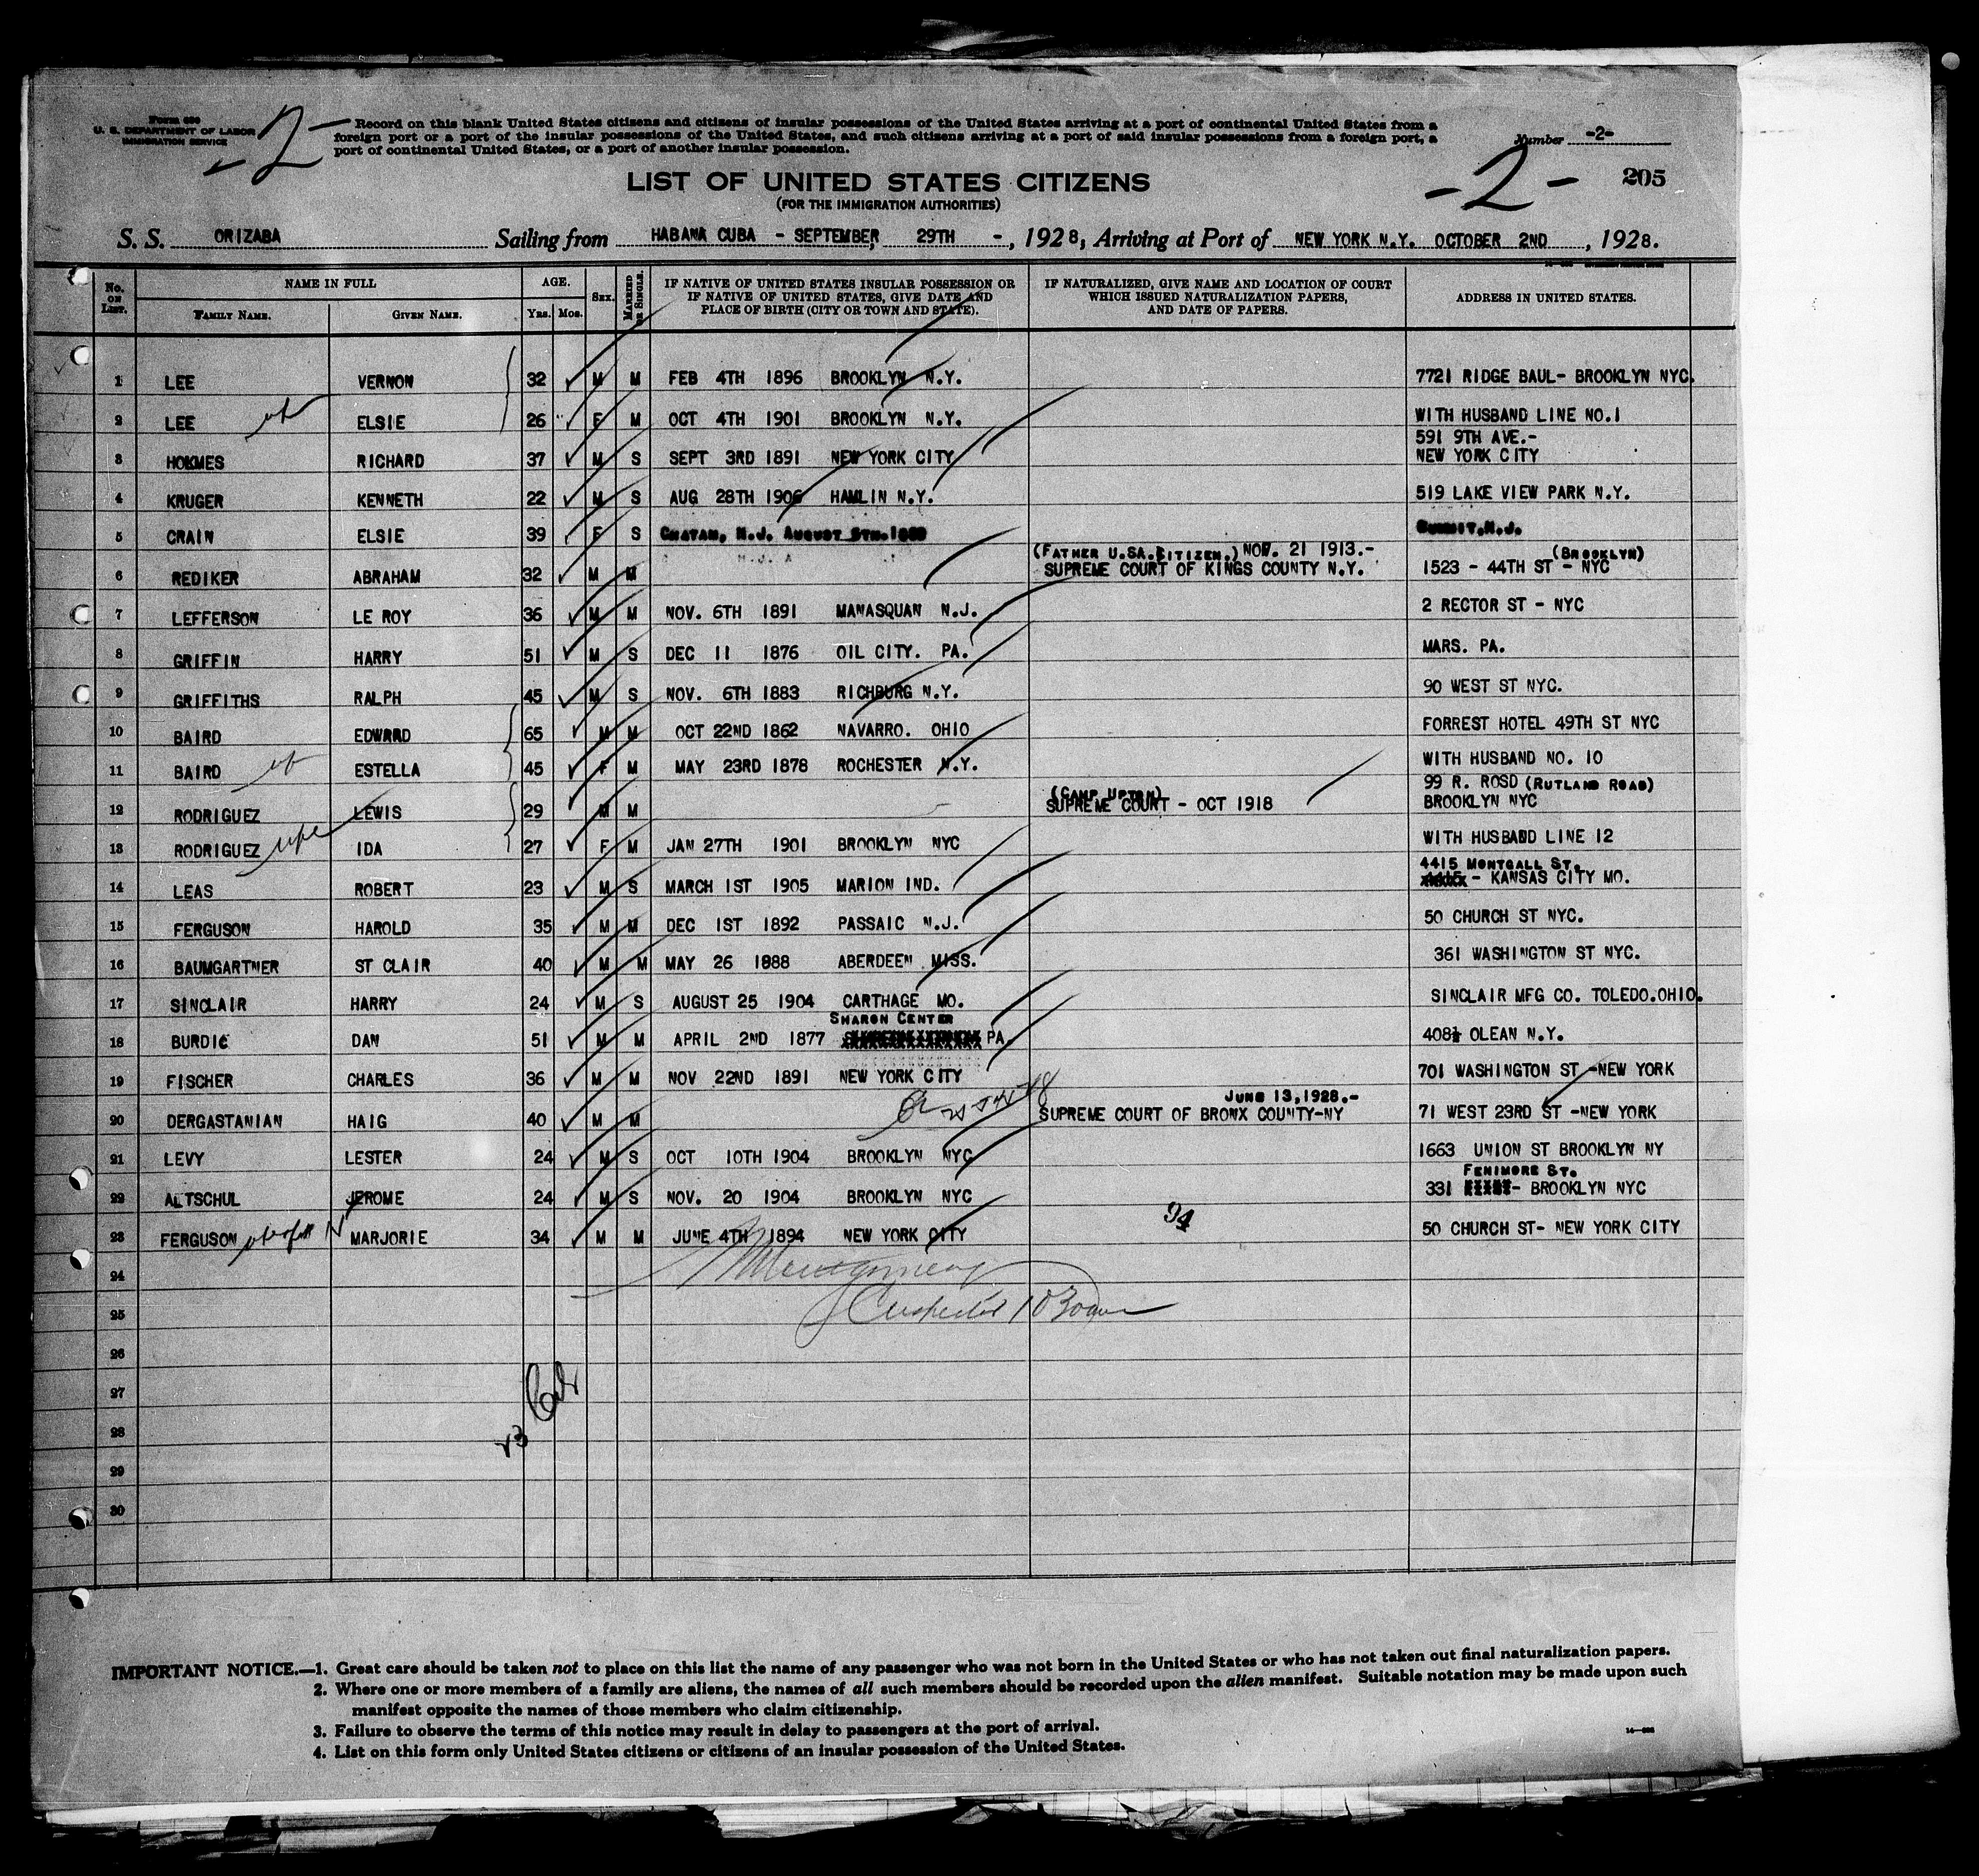 Form 630
U. S. DEPARTMENT OF LABOR
IMMIGRATION SERVICE
-2-
Record on this blank United States citizens and citizens of insular possessions of the United States arriving at a port of continental United States from a
foreign port or a port of the insular possessions of the United States, and such citizens arriving at a port of said insular possessions from a foreign port, a
port of continental United States, or a port of another insular possession.
Number -2-
-2- 205
LIST OF UNITED STATES CITIZENS
(FOR THE IMMIGRATION AUTHORITIES)
S. S. ORIZABA Sailing from HABANA CUBA - SEPTEMBER, 29TH -, 1928, Arriving at Port of NEW YORK N.Y. OCTOBER 2ND, 1928.
No. ON LIST. NAME IN FULL FAMILY NAME. GIVEN NAME. AGE. Yrs. Mos. SEX. MARRIED OR SINGLE. IF NATIVE OF UNITED STATES INSULAR POSSESSION OR IF NATIVE OF UNITED STATES, GIVE DATE AND PLACE OF BIRTH (CITY OR TOWN AND STATE). IF NATURALIZED, GIVE NAME AND LOCATION OF COURT WHICH ISSUED NATURALIZATION PAPERS, AND DATE OF PAPERS. ADDRESS IN UNITED STATES.
1 LEE VERNON 32 M M FEB 4TH 1896 BROOKLYN N.Y. 7721 RIDGE BAUL- BROOKLYN NYC.
2 LEE ELSIE 26 F M OCT 4TH 1901 BROOKLYN N.Y. WITH HUSBAND LINE NO.1
591 9TH AVE.-
3 HOKMES RICHARD 37 M S SEPT 3RD 1891 NEW YORK CITY NEW YORK CITY
4 KRUGER KENNETH 22 M S AUG 28TH 1906 HAMLIN N.Y. 519 LAKE VIEW PARK N.Y.
5 CRAIN ELSIE 39 F S CHATAM, N.J. AUGUST 5TH.1889 SUMMIT,N.J.
(FATHER U.SA.CITIZEN.) NOV. 21 1913.- (BROOKLYN)
6 REDIKER ABRAHAM 32 M M SUPREME COURT OF KINGS COUNTY N.Y. 1523 - 44TH ST - NYC
7 LEFFERSON LE ROY 36 M M NOV. 6TH 1891 MANASQUAN N.J. 2 RECTOR ST - NYC
8 GRIFFIN HARRY 51 M S DEC 11 1876 OIL CITY. PA. MARS. PA.
9 GRIFFITHS RALPH 45 M S NOV. 6TH 1883 RICHBURG N.Y. 90 WEST ST NYC.
10 BAIRD EDWARD 65 M M OCT 22ND 1862 NAVARRO. OHIO FORREST HOTEL 49TH ST NYC
11 BAIRD ESTELLA 45 F M MAY 23RD 1878 ROCHESTER N.Y. WITH HUSBAND NO. 10
(CAMP UPTON) 99 R. ROSD (RUTLAND ROAD)
12 RODRIGUEZ LEWIS 29 M M SUPREME COURT - OCT 1918 BROOKLYN NYC
13 RODRIGUEZ wife IDA 27 F M JAN 27TH 1901 BROOKLYN NYC WITH HUSBAND LINE 12
4415 MONTGALL ST.
14 LEAS ROBERT 23 M S MARCH 1ST 1905 MARION IND. - KANSAS CITY MO.
15 FERGUSON HAROLD 35 M M DEC 1ST 1892 PASSAIC N.J. 50 CHURCH ST NYC.
16 BAUMGARTNER ST CLAIR 40 M M MAY 26 1888 ABERDEEN MISS. 361 WASHINGTON ST NYC.
17 SINCLAIR HARRY 24 M S AUGUST 25 1904 CARTHAGE MO. SINCLAIR MFG CO. TOLEDO.OHIO.
SHARON CENTER
18 BURDIC DAN 51 M M APRIL 2ND 1877 PA. 408½ OLEAN N.Y.
19 FISCHER CHARLES 36 M M NOV 22ND 1891 NEW YORK CITY 701 WASHINGTON ST -NEW YORK
JUNE 13,1928.-
20 DERGASTANIAN HAIG 40 M M SUPREME COURT OF BRONX COUNTY-NY 71 WEST 23RD ST -NEW YORK
21 LEVY LESTER 24 M S OCT 10TH 1904 BROOKLYN NYC 1663 UNION ST BROOKLYN NY
FENIMORE ST.
22 ALTSCHUL JEROME 24 M S NOV. 20 1904 BROOKLYN NYC 331 - BROOKLYN NYC
94
23 FERGUSON MARJORIE 34 M M JUNE 4TH 1894 NEW YORK CITY 50 CHURCH ST- NEW YORK CITY
24
25
26
27
28
29
30
IMPORTANT NOTICE.—1. Great care should be taken not to place on this list the name of any passenger who was not born in the United States or who has not taken out final naturalization papers.
2. Where one or more members of a family are aliens, the names of all such members should be recorded upon the alien manifest. Suitable notation may be made upon such
manifest opposite the names of those members who claim citizenship.
3. Failure to observe the terms of this notice may result in delay to passengers at the port of arrival.
4. List on this form only United States citizens or citizens of an insular possession of the United States.